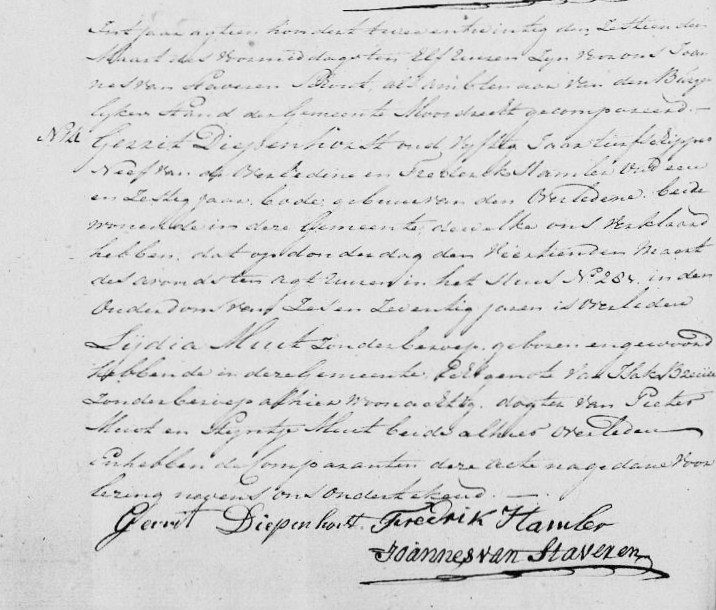 Int jaar agtien hondert twee en twintig den Zestiende
Maart des voormiddags ten Elf Uuren Zyn voor ons Joan
nes van Staveren Schout, als ambtenaar van den Burge
lyken Stand der Gemeente Moordrecht gecompareerd.—
No 12 Gerrit Diepenhorst oud vyftig Jaar turfschipper
Neef van de Overledene en Frederik Hamler Oud een
en Zestig jaar, bode, gebuur van den Overledene beide
wonende in deze Gemeente, dewelke ons verklaard
hebben, dat op donderdag den Viertienden Maart
des avonds ten agt Uuren in het Huis No 287. in den
Ouderdom van Zes en Zeventig jaren is overleden
Lijdia Muet Zonder beroep, geboren en gewoond
Hebbende in deze Gemeente, Echtgenote van Isak
Zonder beroep alhier woonachtig, dogter van Pieter
Muet en Muet beide alhier Overleden
En hebben de Comparanten deze acte na gedane voor
lezing nevens ons ondertekend.—
Gerrit Diepenhorst. Fredrik Hamler
Joannes van Staveren